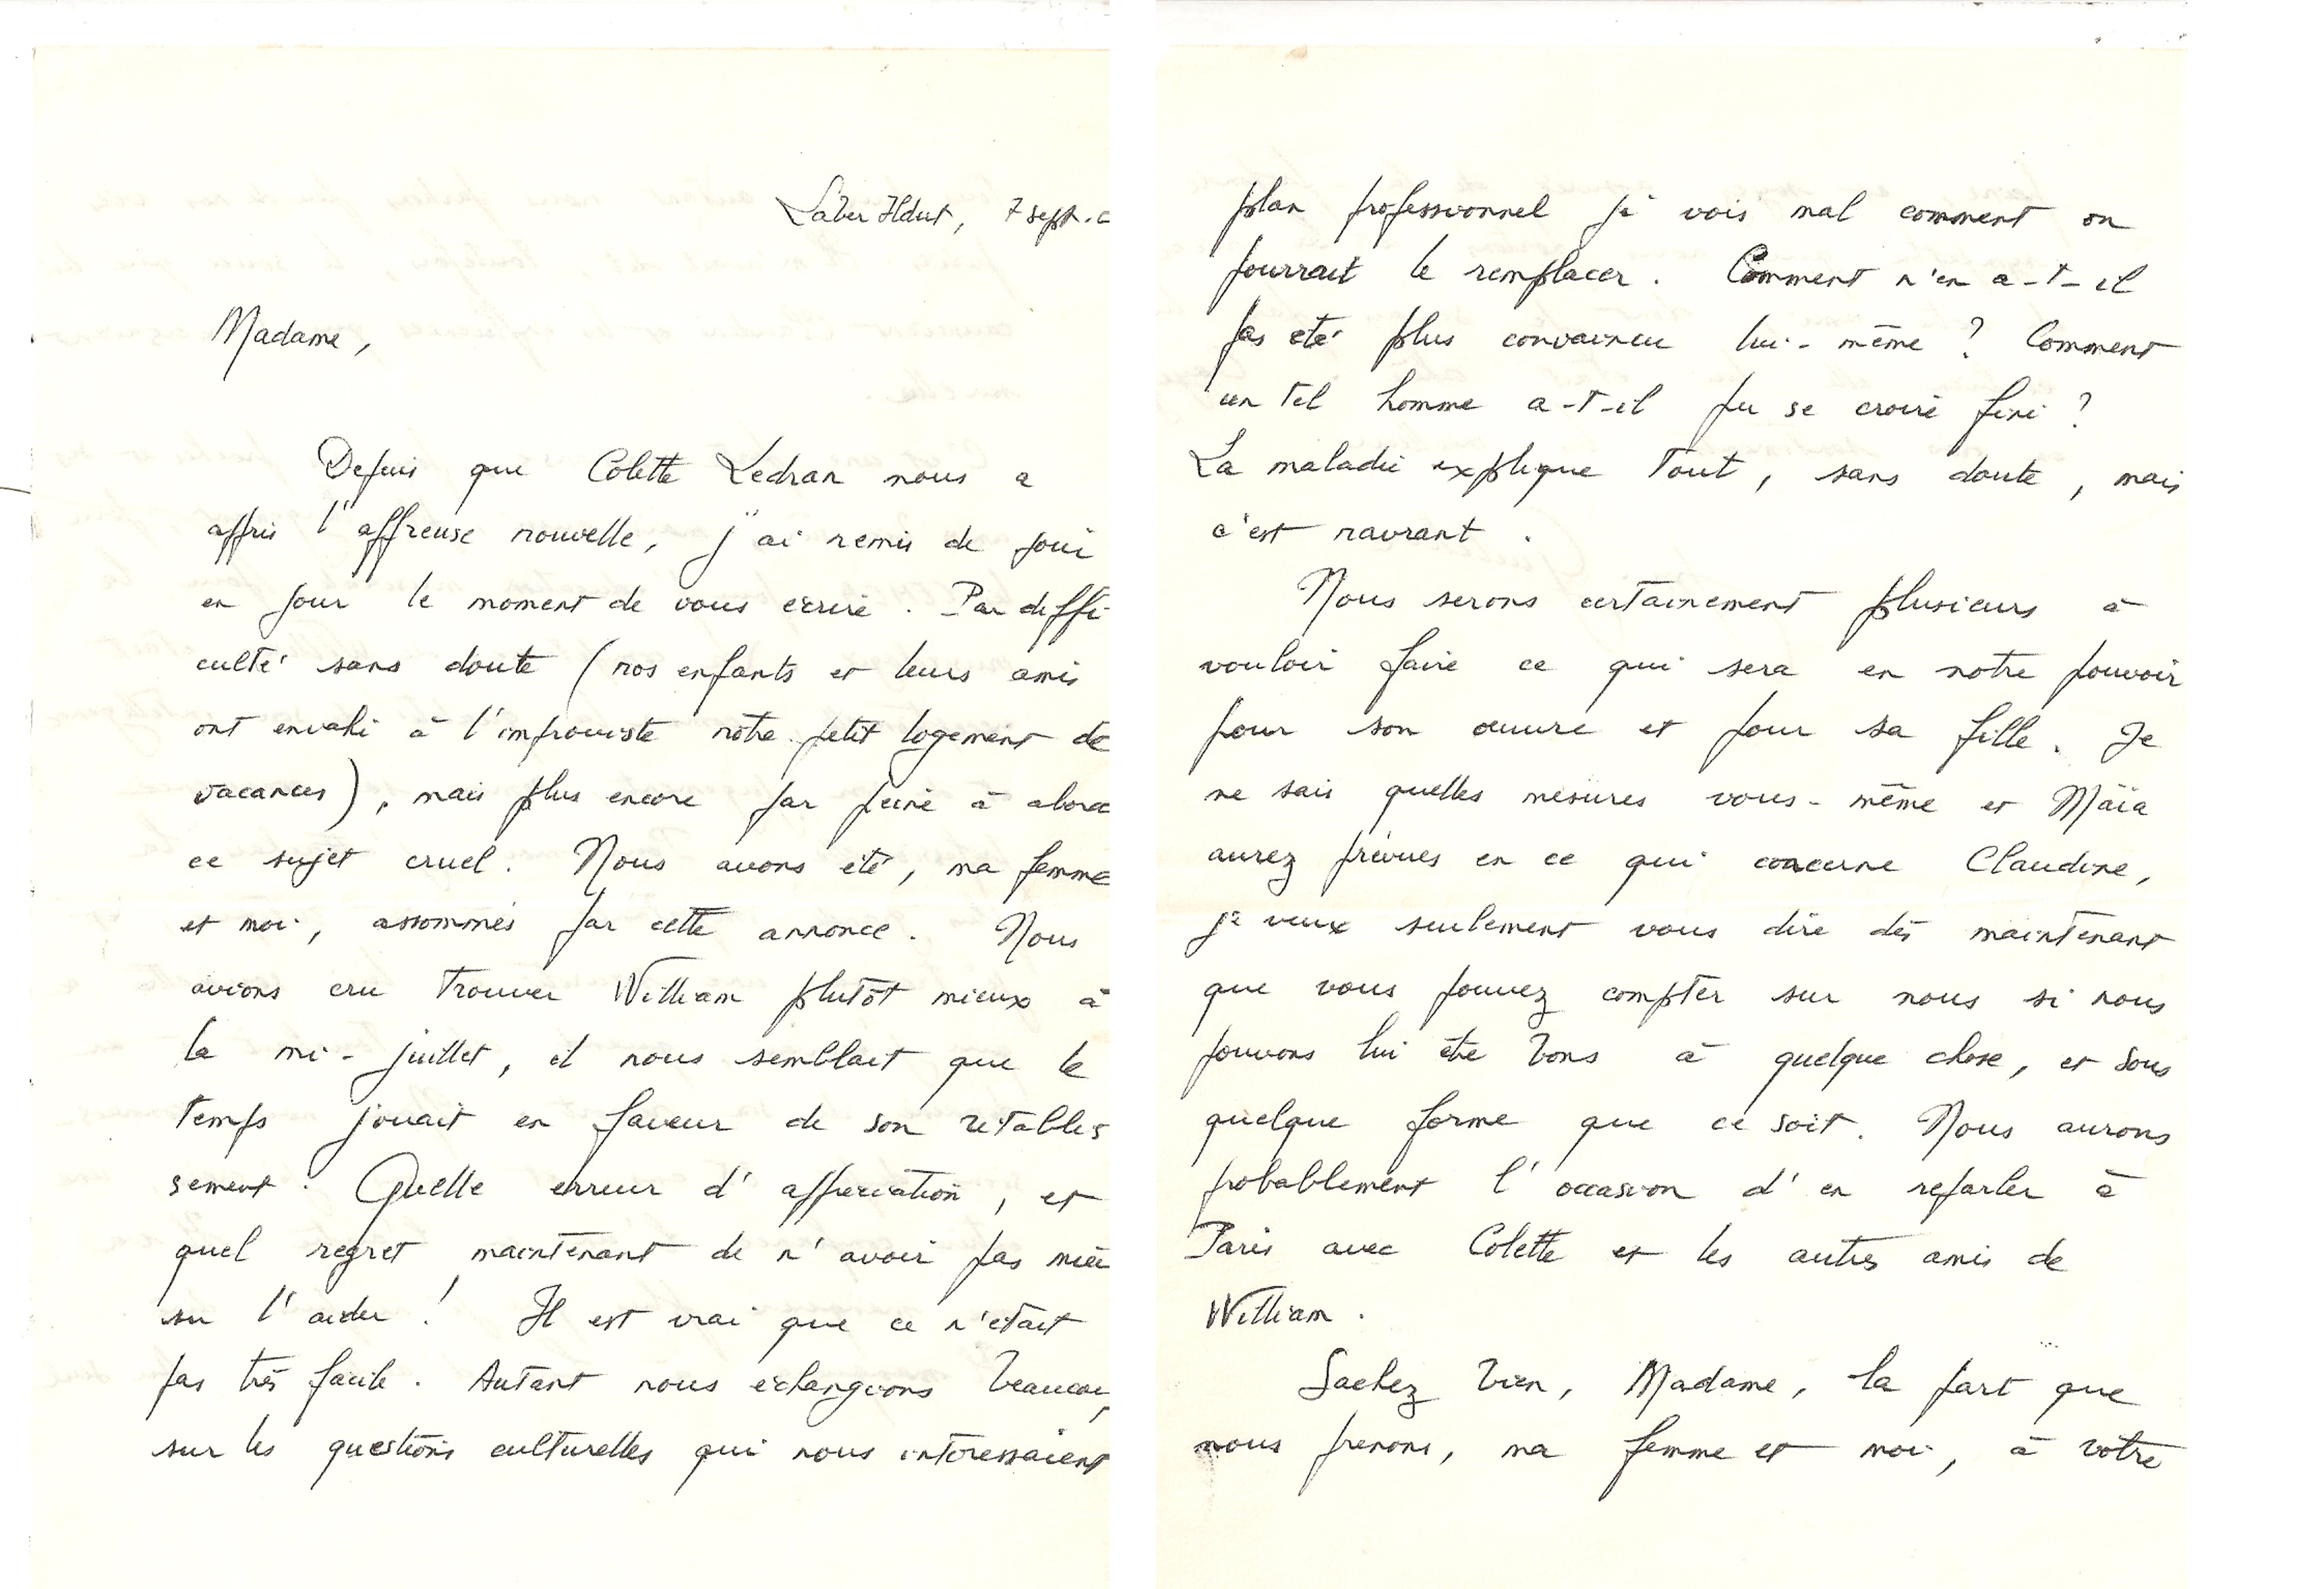 Laber Ildut, 7 sept.
Madame,
Depuis que Colette Ledran nous a
appris l'affreuse nouvelle, j'ai remis de jour
en jour le moment de vous écrire. Par diffi-
culté sans doute (nos enfants et leurs amis
ont envahi à l'improviste notre petit logement de
vacances), mais plus encore par peine à abord
ce sujet cruel. Nous avons été, ma femme
et moi, assommés par cette annonce. Nous
avions cru trouver William plutôt mieux à
la mi-juillet, il nous semblait que le
temps jouait en faveur de son rétablis
sement. Quelle erreur d'appréciation, et
quel regret maintenant de n'avoir pas mieu
su l'aider ! Il est vrai que ce n'était
pas très facile. Autant nous échangions beaucou
sur les questions culturelles qui nous intéressaient
plan professionnel je vois mal comment on
pourrait le remplacer. Comment n'en a-t-il
pas été plus convaincu lui-même ? Comment
un tel homme a-t-il pu se croire fini ?
La maladie explique tout, sans doute, mais
c'est navrant.
Nous serons certainement plusieurs à
vouloir faire ce qui sera en notre pouvoir
pour son œuvre et pour sa fille. Je
ne sais quelles mesures vous-même et Maïa
aurez prévues en ce qui concerne Claudine,
je veux seulement vous dire dès maintenant
que vous pouvez compter sur nous si nous
pouvons lui être bons à quelque chose, et sous
quelque forme que ce soit. Nous aurons
probablement l'occasion d'en reparler à
Paris avec Colette et les autres amis de
William.
Sachez bien, Madame, la part que
nous prenons, ma femme et moi, à votre